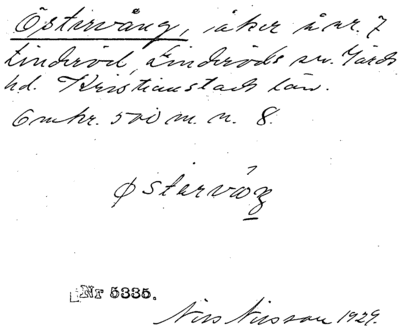 Östervång, åker å nr. 7
Linderöd, Linderöds sn. Gärds
hd. Kristianstads län.
Omkr. 500 m. n. 8.
østervåŋ
Nr 5335.
Nils Nilsson 1929.